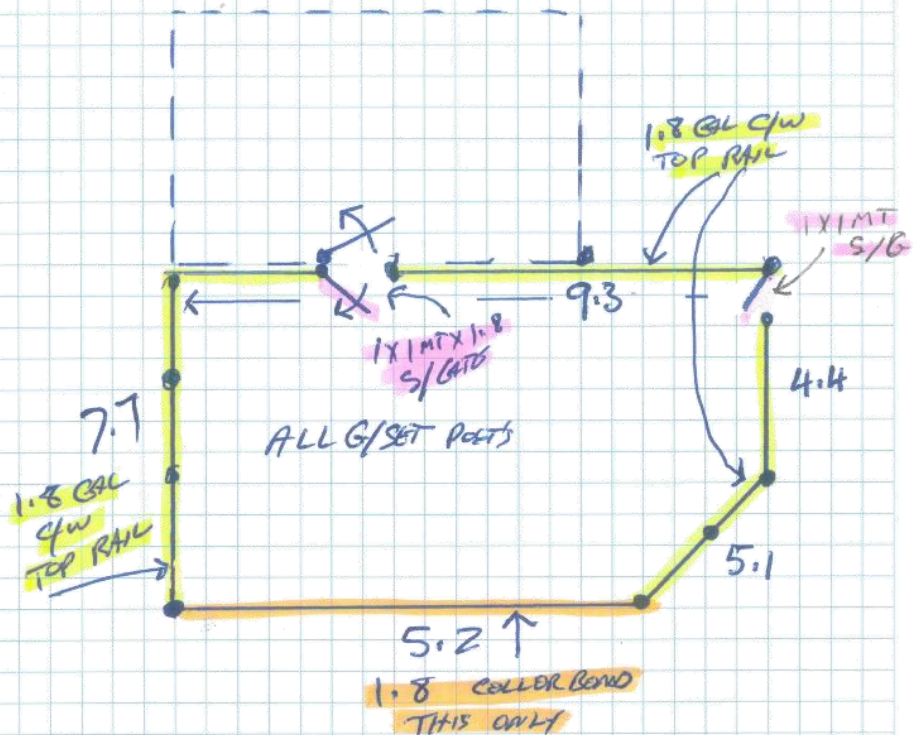 1.8 GAL C/W
TOP RAIL
1X1MT
S/G
9.3
1X1MTX1.8
S/GATE
4.4
7.7
ALL G/SET POSTS
1.8 GAL
C/W
TOP RAIL
5.1
5.2
1.8 COLLORBOND
THIS ONLY